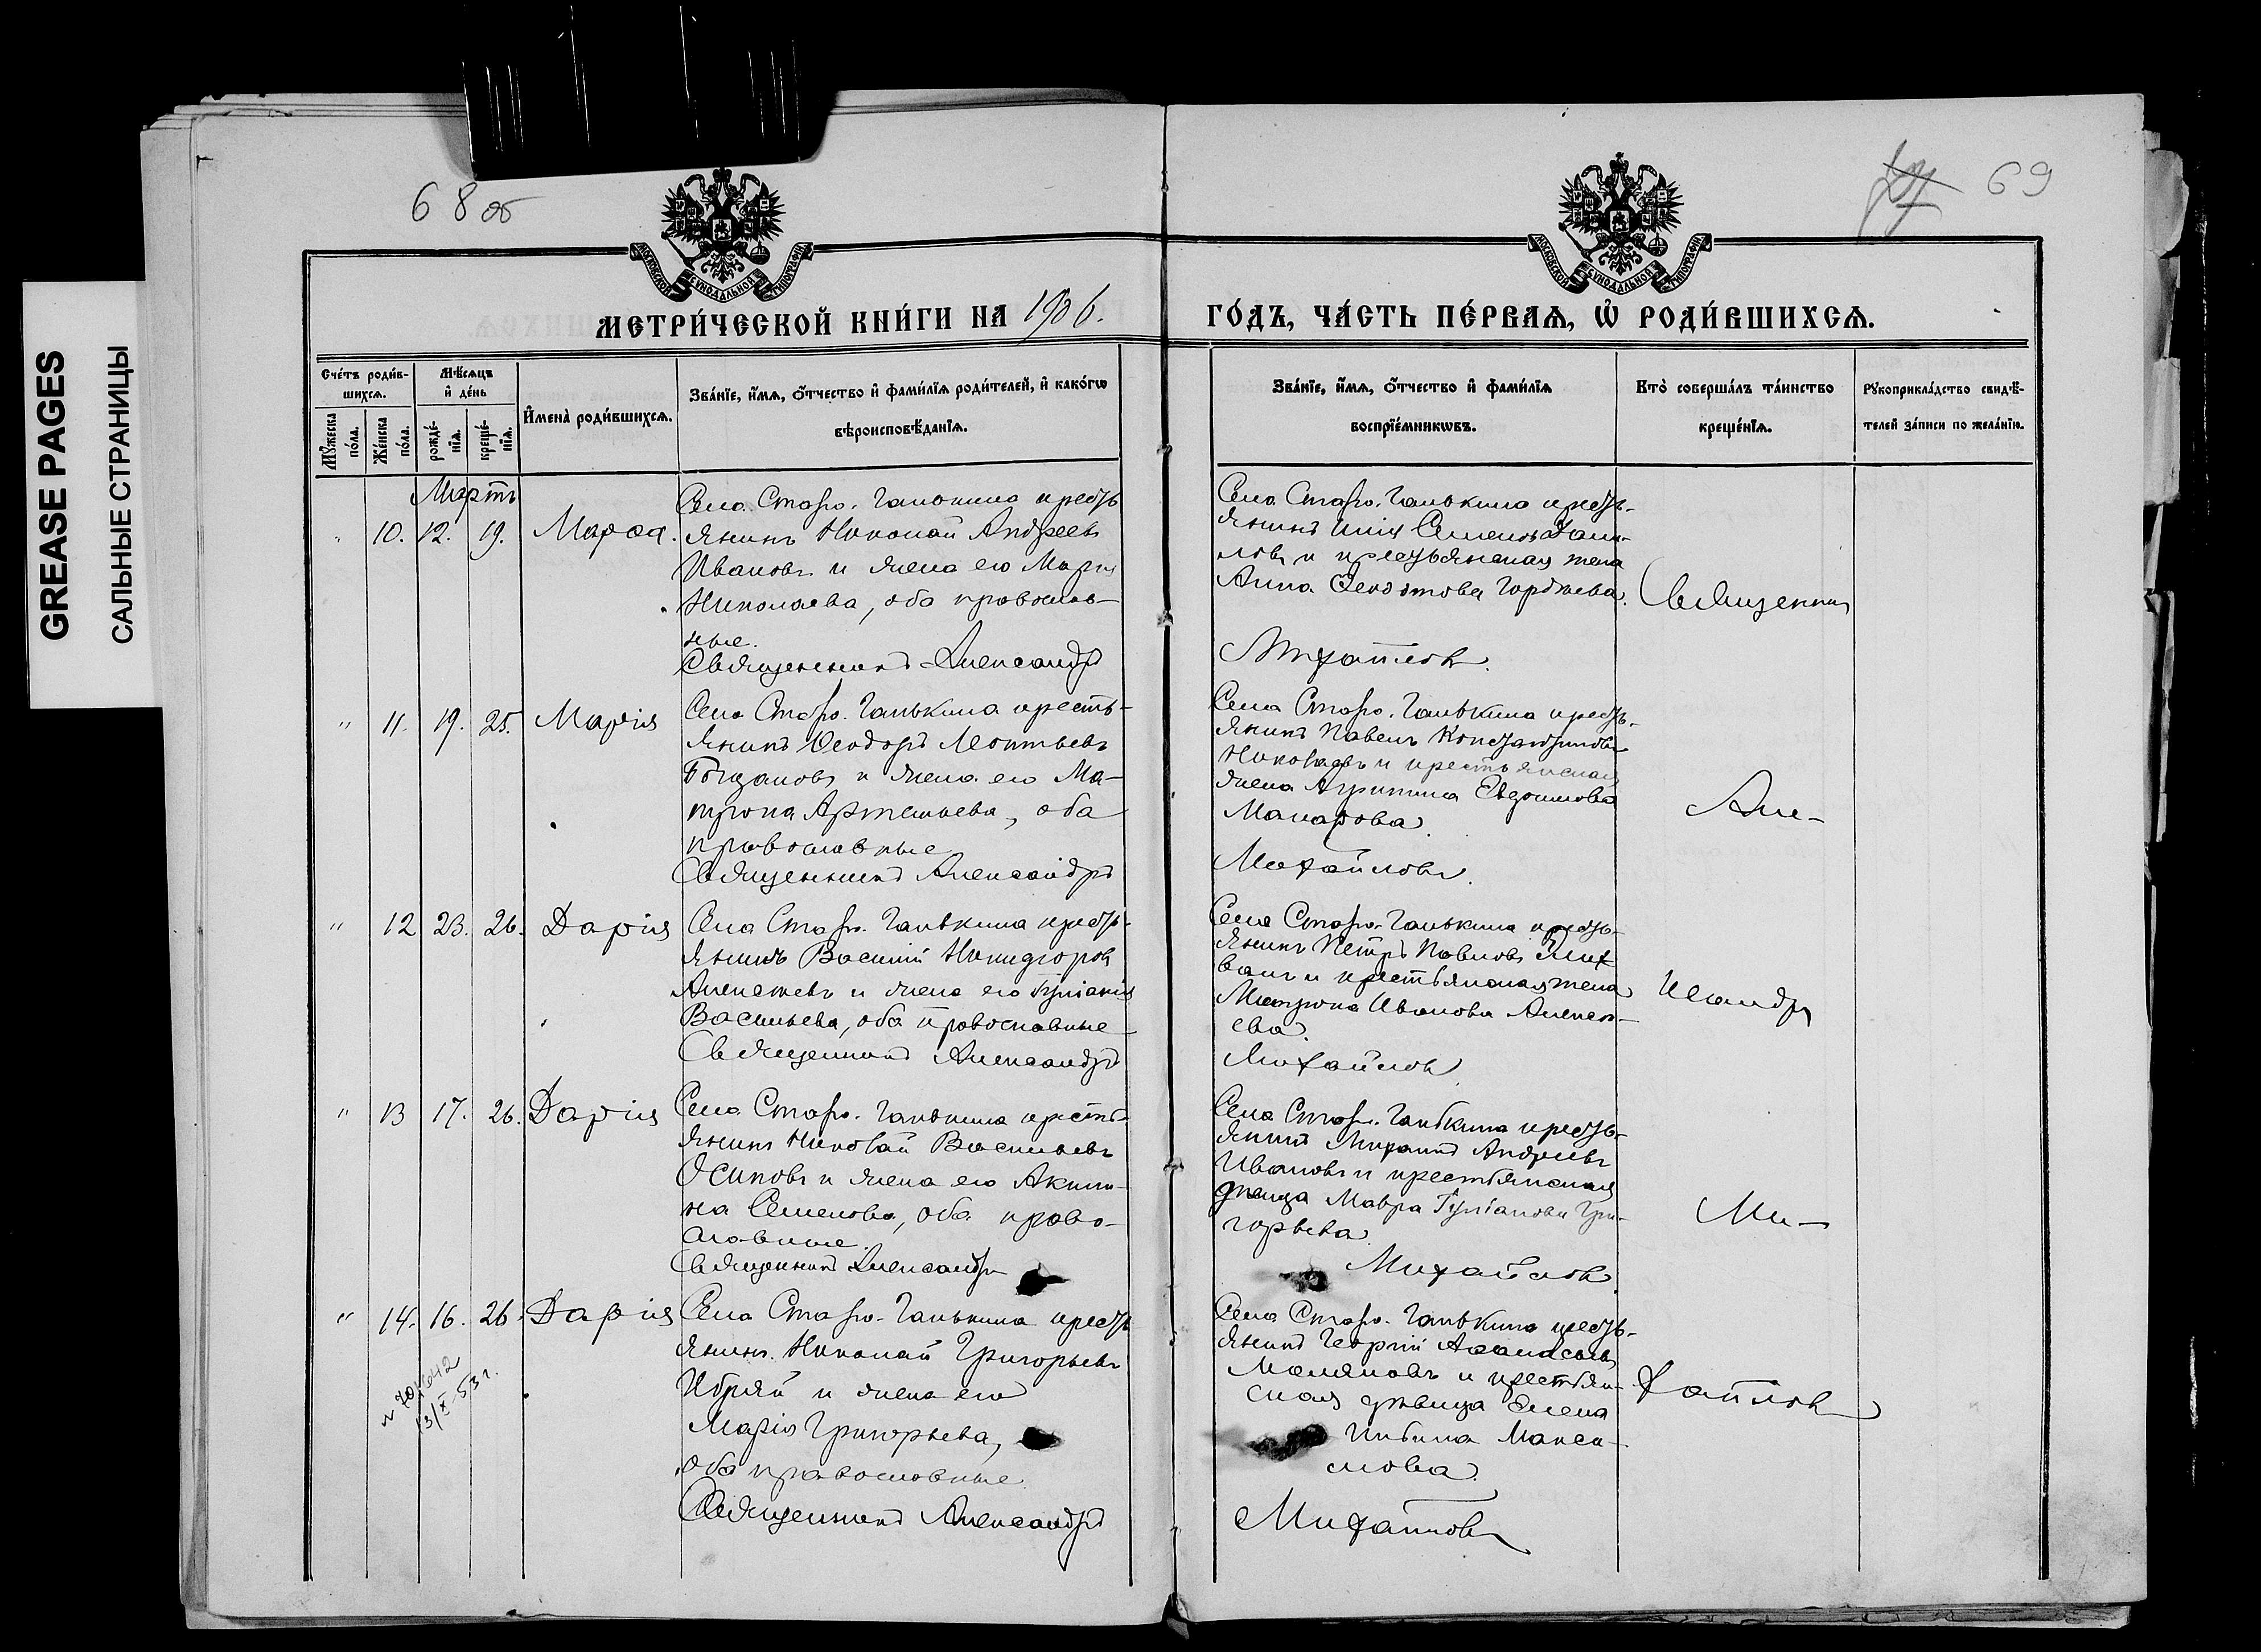 GREASE PAGES
САЛЬНЫЕ СТРАНИЦЫ
68 об
69
МОСКОВСКОЙ СУНОДАЛЬНОЙ ТИПОГРАФІИ
МОСКОВСКОЙ СУНОДАЛЬНОЙ ТИПОГРАФІИ
МЕТРИ́ЧЕСКОЙ КНИ́ГИ НА 1906.
ГО́ДЪ, ЧА́СТЬ ПЕ́РВАЯ, Ѡ҆ РОДИ́ВШИХСЯ.
Сче́тъ роди́в-
шихся.
Мꙋ́жеска по́ла.
Же́нска по́ла.
Мѣ́сяцъ
и҆ де́нь
рожде́-
нїя.
креще́-
нїя.
И҆мена̀ роди́вшихся.
Зва́нїе, и҆́мя, о҆́тчество и҆ фами́лїя роди́телей, и҆ како́гѡ
вѣроисповѣ́данїя.
Зва́нїе, и҆́мя, о҆́тчество и҆ фами́лїя
воспрїе́мникѡвъ.
Кто̀ соверша́лъ та́инство
креще́нїя.
Рꙋкоприкла́дство свидѣ́-
телей за́писи по жела́нїю.
Мартъ
10. 12. 19. Марѳа.
Села Старо. Ганькина кресть
янинъ Николай Андреевъ
Ивановъ и жена его Марія
Николаева, оба православ-
ные.
Священникъ Александръ
Села Старо. Ганькина кресть-
янинъ Илія Семеновъ Дани-
ловъ и крестьянская жена
Анна Ѳеодотова Гордѣева.
Михайловъ.
Священникъ
" 11. 19. 25. Марія
Села Старо. Ганькина кресть-
янинъ Ѳеодоръ Леонтьевъ
Богдановъ и жена его Ма-
трона Артемьева, оба
православные
Священникъ Александръ
Села Старо. Ганькина кресть-
янинъ Павелъ Константиновъ
Николаевъ и крестьянская
жена Агрипина Евдокимова
Макарова.
Михайловъ.
Але-
" 12 23. 26. Дарія
Села Старо. Ганькина кресть-
янинъ Василій Никифоровъ
Алексѣевъ и жена его Іуліанія
Васильева, оба православные
Священникъ Александръ
Села Старо. Ганькина кресть-
янинъ Петръ Павловъ
и крестьянская жена
Матрона Иванова Алексѣ-
ева.
Михайловъ.
ксандръ
" 13 17. 26. Дарія
Села Старо. Ганькина кресть-
янинъ Николай Васильевъ
Осиповъ и жена его Акили-
на Семенова, оба право-
славные.
Священникъ Александръ
Села Старо. Ганькина кресть-
янинъ Михаилъ Андреевъ
Ивановъ и крестьянская
дѣвица Мавра Іуліанова Гри-
горьева.
Михайловъ.
Ми-
" 14. 16. 26. Дарія
13/X-53 г.
Села Старо. Ганькина кресть
янинъ Николай Григорьевъ
и жена его
Марія Григорьева,
оба православные.
Священникъ Александръ
Села Старо. Ганькина кресть-
янинъ Георгій Аѳанасьевъ
и крестьян-
ская дѣвица Елена
Макси-
мова.
Михайловъ
хайловъ